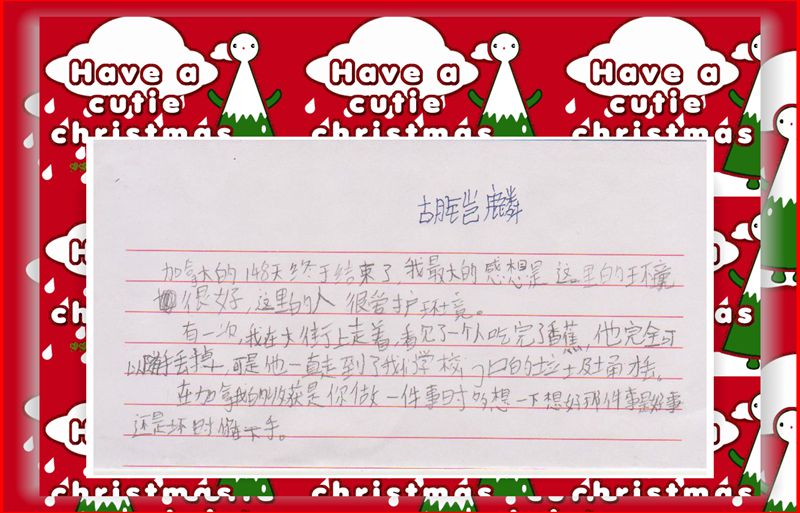 Have a Have a Have a
cutie cutie cutie
christmas christmas christmas
胡 麟
加拿大的148天终于结束了,我最大的感想是这里的环
很好,这里的人 很爱护环境。
有一次,我在大街上走着,看见了一个人吃完了香蕉,他完全可
以 丢掉,可是他一直走到了我们学校门口的垃圾桶 。
在加拿 的收获是你做一件事时多想一下想好那件事是好事
还是坏 下手。
christmas christmas christmas